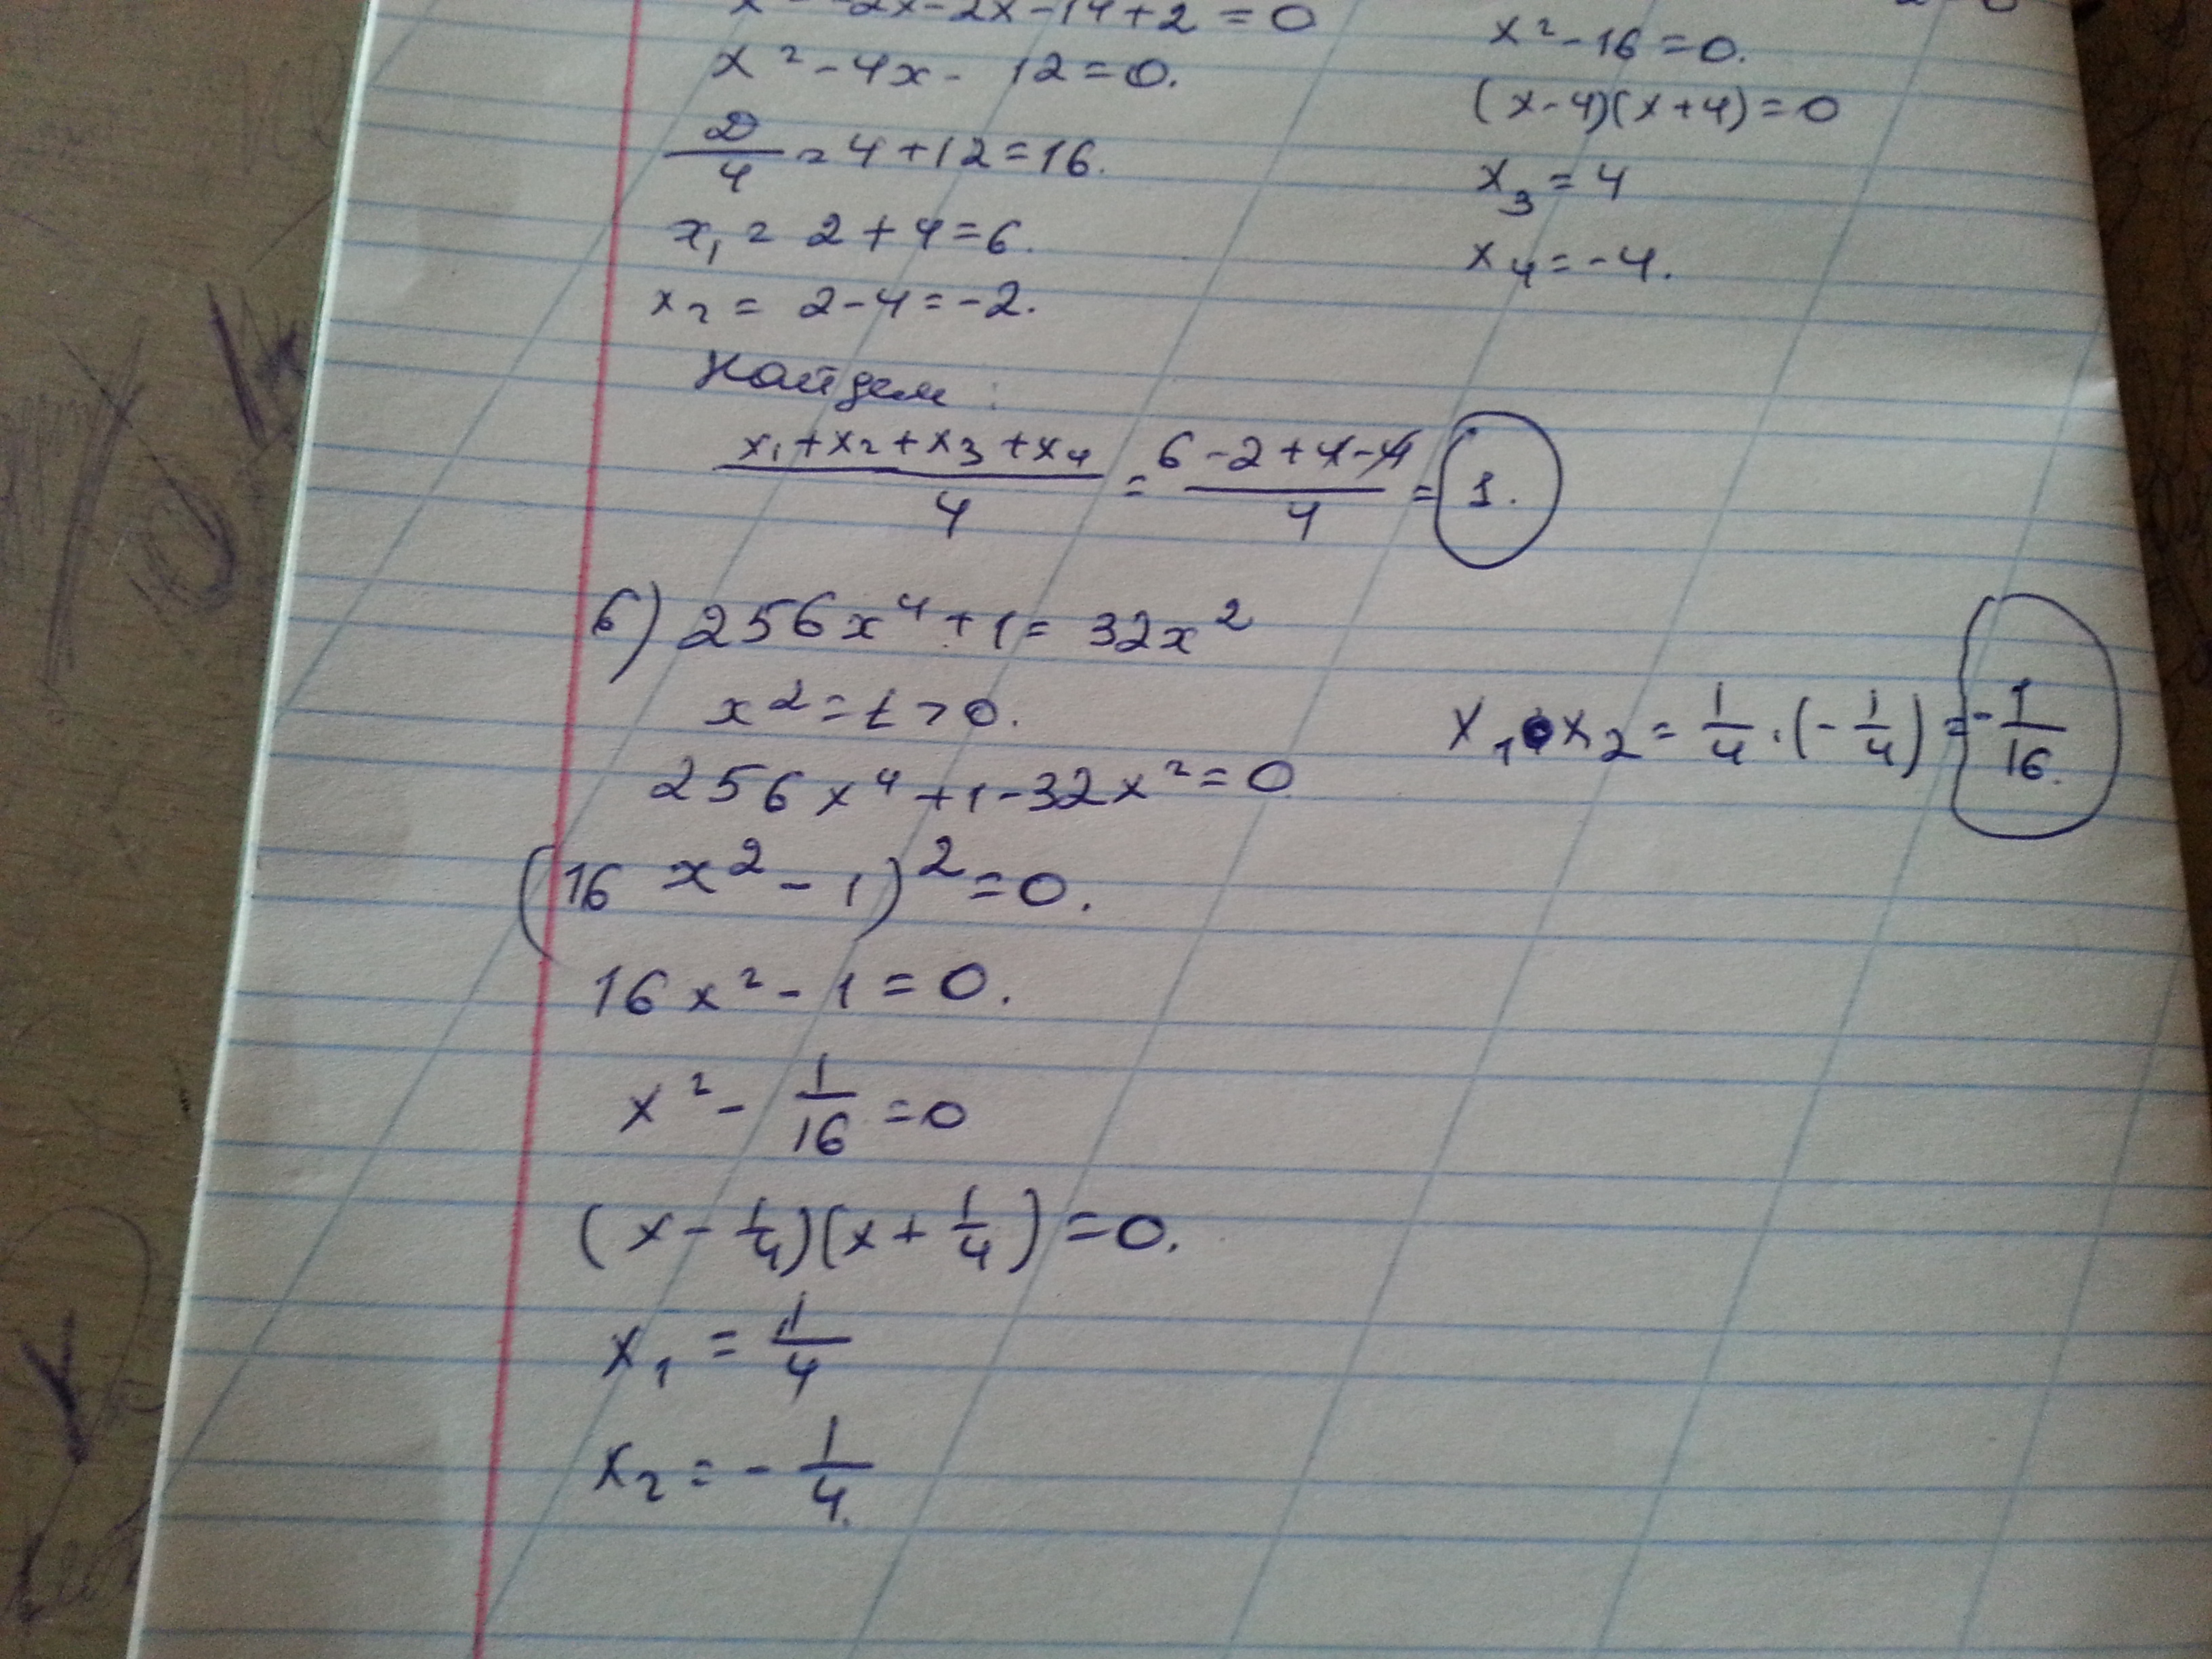 x² - 2x - 2x - 14 + 2 = 0
x² - 4x - 12 = 0.
D/4 = 4 + 12 = 16.
x₁ = 2 + 4 = 6.
x₂ = 2 - 4 = -2.
x² - 16 = 0.
(x - 4)(x + 4) = 0
x₃ = 4
x₄ = -4.
Найдем:
(x₁ + x₂ + x₃ + x₄)/4 = (6 - 2 + 4 - 4)/4 = 1.
б) 256x⁴ + 1 = 32x²
x² = t > 0.
256x⁴ + 1 - 32x² = 0
(16x² - 1)² = 0.
16x² - 1 = 0.
x² - 1/16 = 0
(x - 1/4)(x + 1/4) = 0.
x₁ = 1/4
x₂ = -1/4.
x₁ • x₂ = 1/4 · (-1/4) = -1/16.